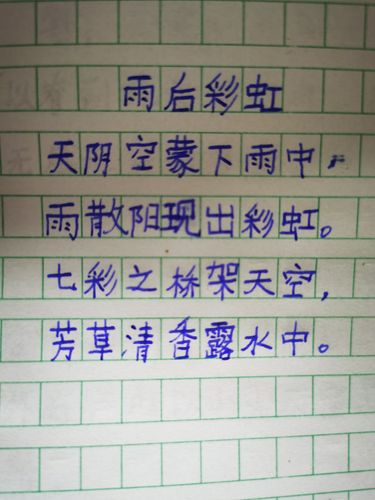 雨后彩虹
天阴空蒙下雨中,
雨散阳现出彩虹。
七彩之桥架天空,
芳草清香露水中。